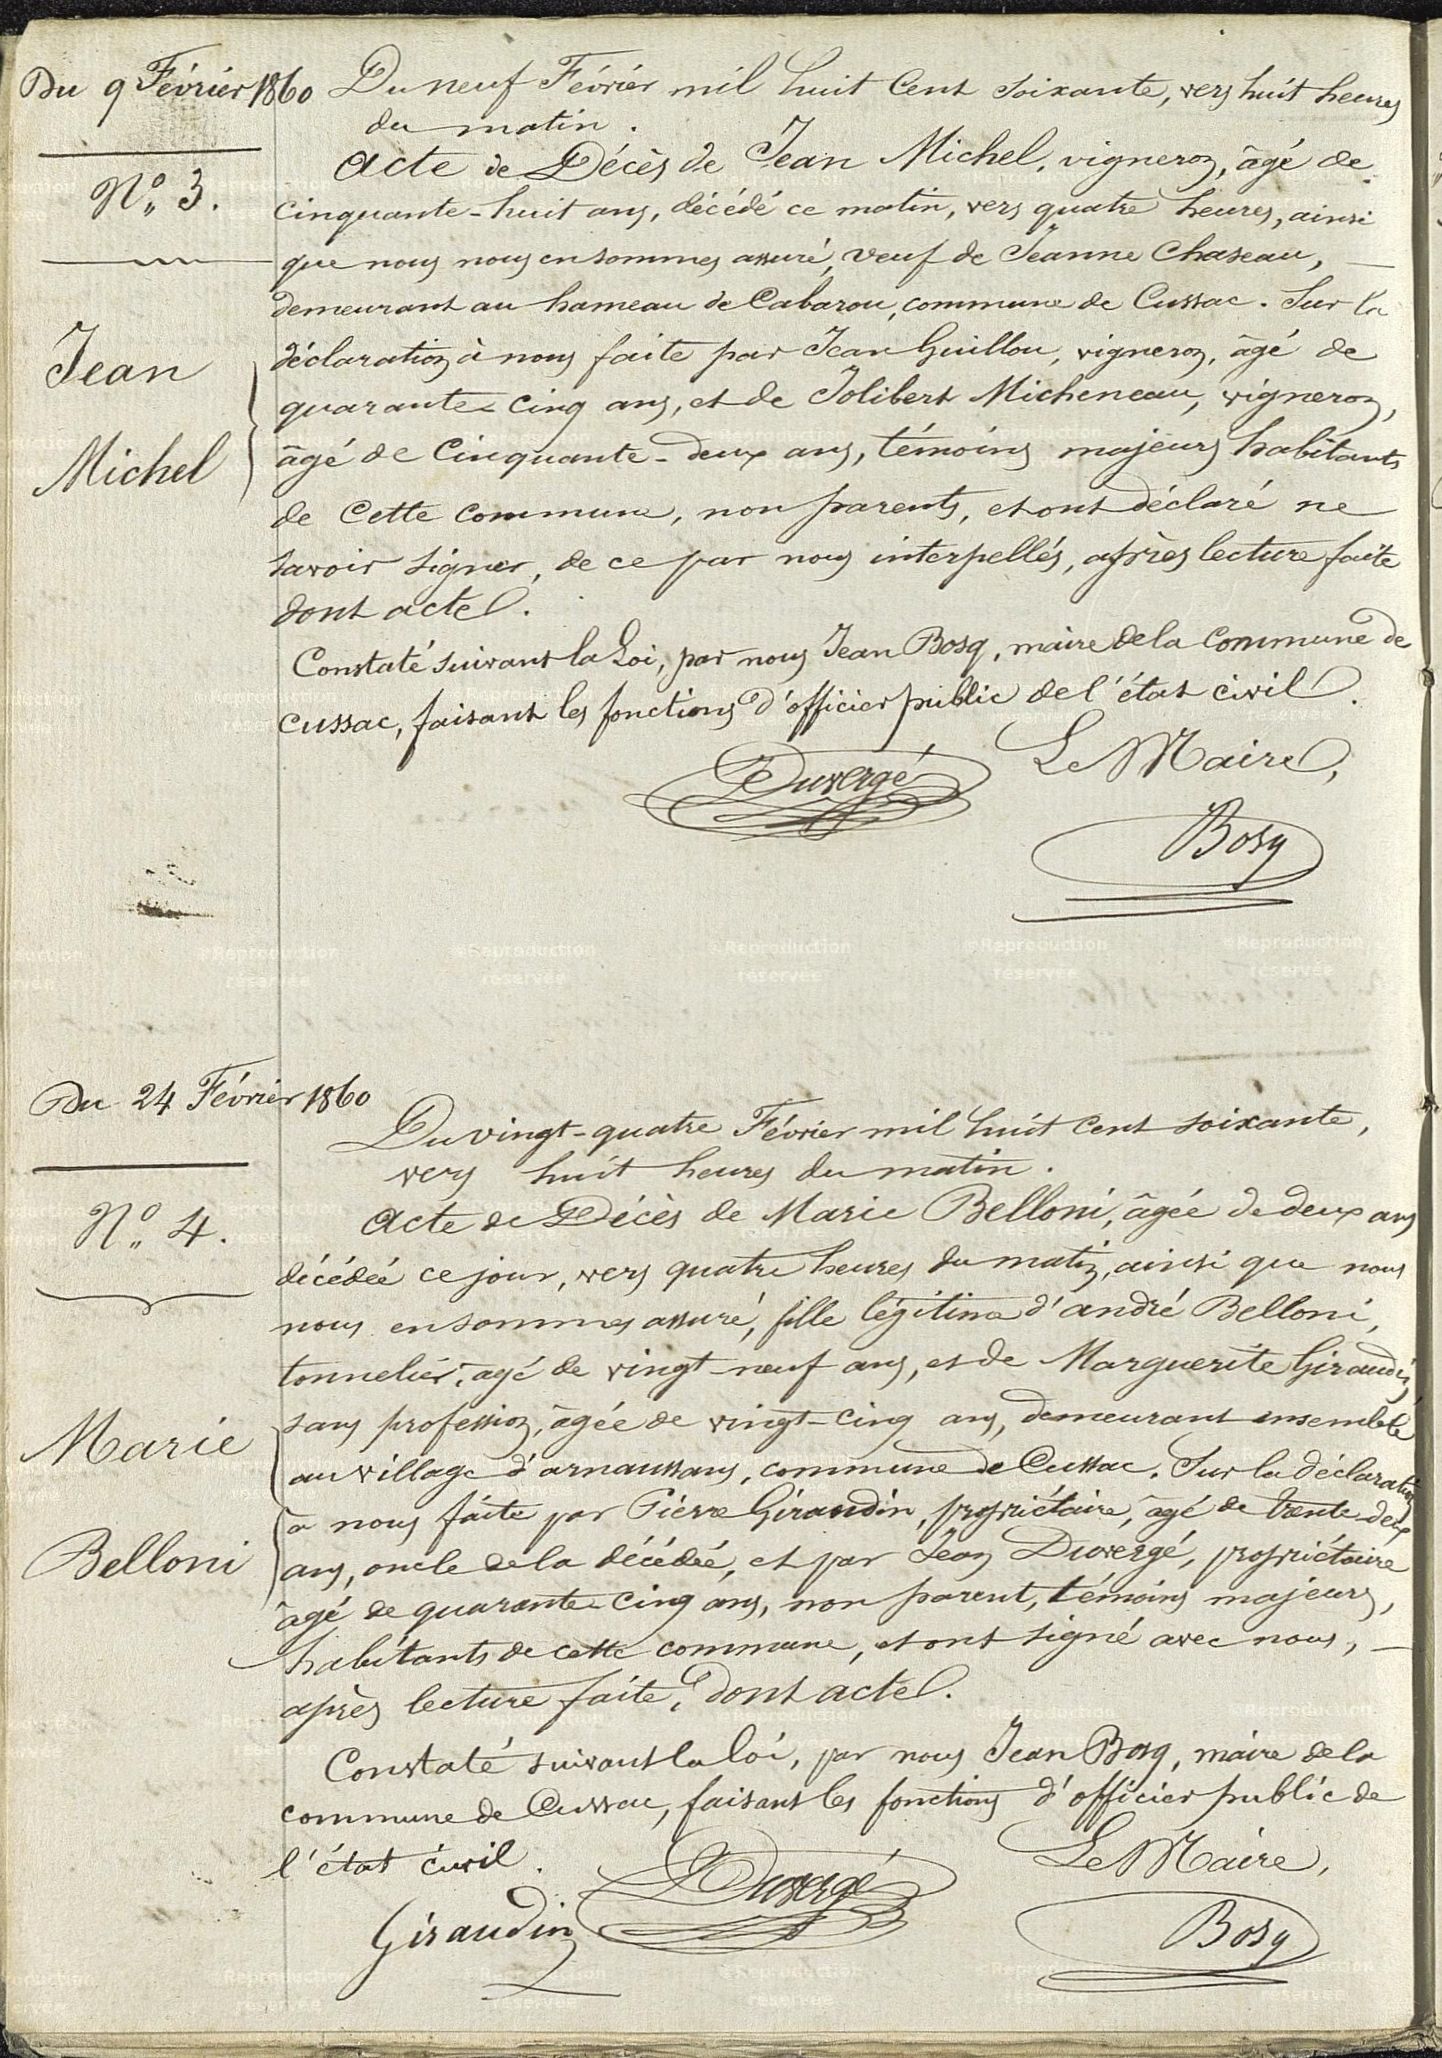 Du 9 Février 1860
N° 3.
Jean
Michel
Du neuf Février mil huit Cent soixante, vers huit heures
du matin.
Acte de Décès de Jean Michel, vigneron, âgé de
cinquante-huit ans, décédé ce matin, vers quatre heures, ainsi
que nous nous en sommes assuré, veuf de Jeanne Chaseau,
demeurant au hameau de Cabarou, commune de Cussac. Sur la
déclaration à nous faite par Jean Guillou, vigneron, âgé de
quarante-cinq ans, et de Jolibert Micheneau, vigneron,
âgé de Cinquante-deux ans, témoins majeurs habitants
de Cette commune, non parents, et ont déclaré ne
savoir signer, de ce par nous interpellés, après lecture faite
dont acte.
Constaté suivant la Loi, par nous Jean Bosq, maire de la Commune de
Cussac, faisant les fonctions d'officier public de l'état civil.
Le Maire,
Duvergé
Bosq
Du 24 Février 1860
N° 4.
Marie
Belloni
Du vingt-quatre Février mil huit cent soixante,
vers huit heures du matin.
Acte de Décès de Marie Belloni, âgée de deux ans
décédée ce jour, vers quatre heures du matin, ainsi que nous
nous en sommes assuré, fille légitime d'andré Belloni,
tonnelier, âgé de vingt-neuf ans, et de Marguerite Giraudin,
sans profession, âgée de vingt-cinq ans, demeurant ensemble
au village d'arnaussans, commune de Cussac. Sur la déclaration
à nous faite par Pierre Giraudin, propriétaire, âgé de trente-deux
ans, oncle de la décédée, et par Jean Duvergé, propriétaire
âgé de quarante-cinq ans, non parent, témoins majeurs,
habitants de cette commune, et ont signé avec nous,
après lecture faite, dont acte.
Constaté suivant la loi, par nous Jean Bosq, maire de la
commune de Cussac, faisant les fonctions d'officier public de
l'état civil.
Le Maire,
Giraudin
Duvergé
Bosq